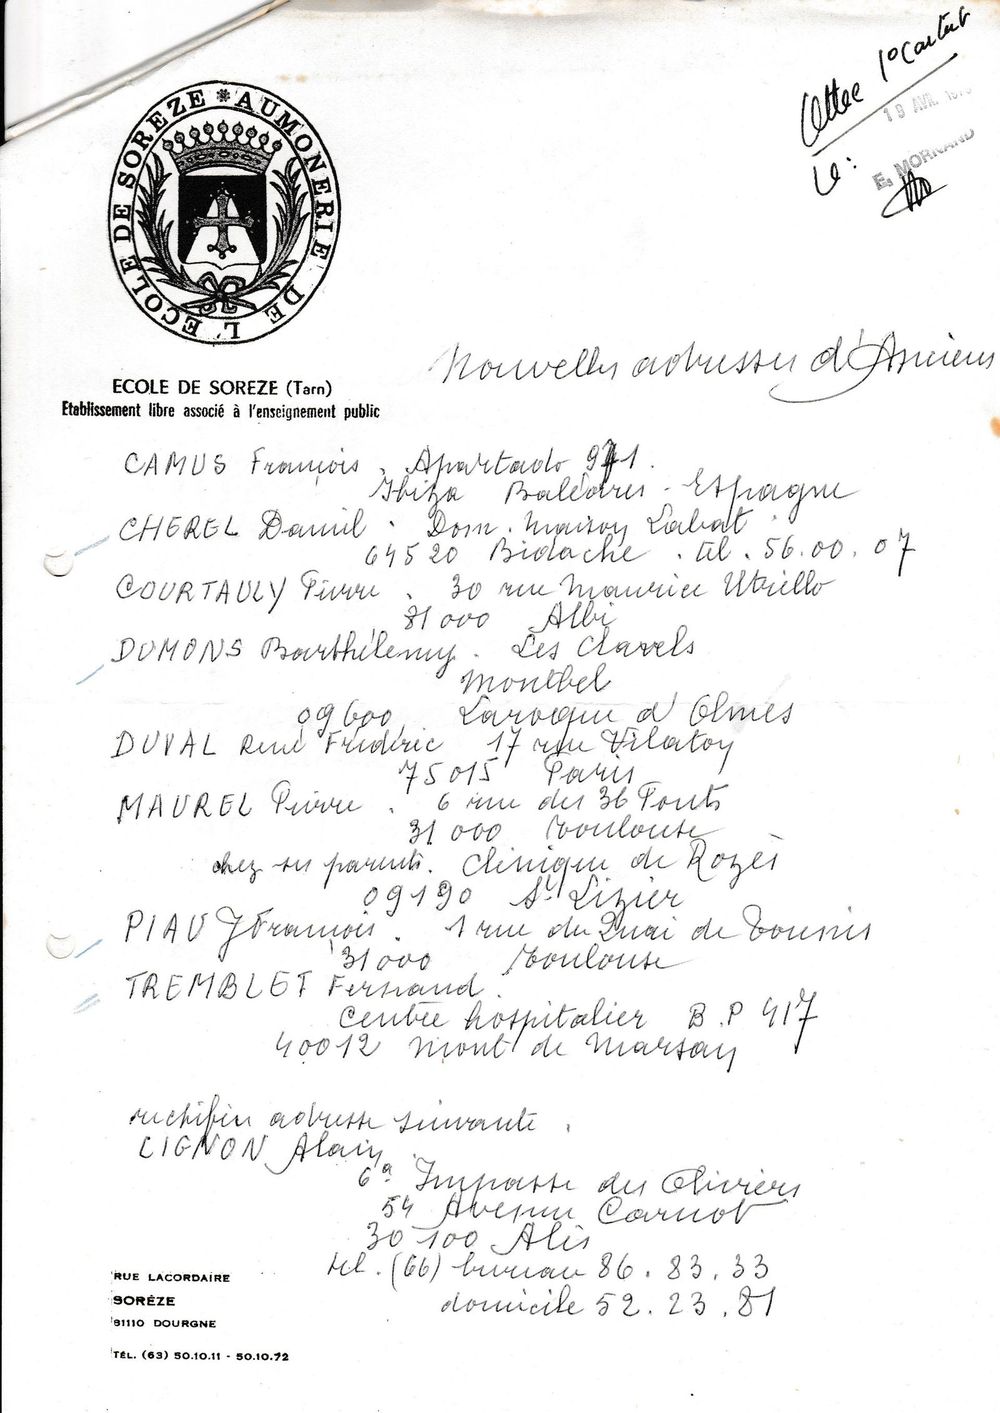 AUMONERIE DE L'ECOLE DE SOREZE
1° Cartert
19 AVR.
le :
E. MORNAND
ECOLE DE SOREZE (Tarn)
Etablissement libre associé à l'enseignement public
Nouvelles adresses d'Anciens
CAMUS François . Apartado 971.
Ibiza Baléares - Espagne
CHEREL Daniel . Dom. Maison Labat .
64520 Bidache . tel . 56.00.07
COURTAULY Pierre . 30 rue Maurice Utrillo
81000 Albi
DUMONS Barthélemy . Les Clavels
Montbel
09600 Laroque d'Olmes
DUVAL René Frédéric 17 rue Vilatoy
75015 Paris
MAUREL Pierre . 6 rue des 36 Ponts
31000 Toulouse
chez ses parents . Clinique de Rozès
09190 St Lizier
PIAU J François . 1 rue du Quai de Tounis
31000 Toulouse
TREMBLET Fernand .
Centre hospitalier B.P 417
40012 Mont de Marsan
rectifier adresse suivante .
LIGNON Alain .
6a Impasse des Oliviers
54 Avenue Carnot
30100 Alès
tel . (66) bureau 86.83.33
domicile 52.23.81
RUE LACORDAIRE
SORÈZE
81110 DOURGNE
TÉL. (63) 50.10.11 - 50.10.72